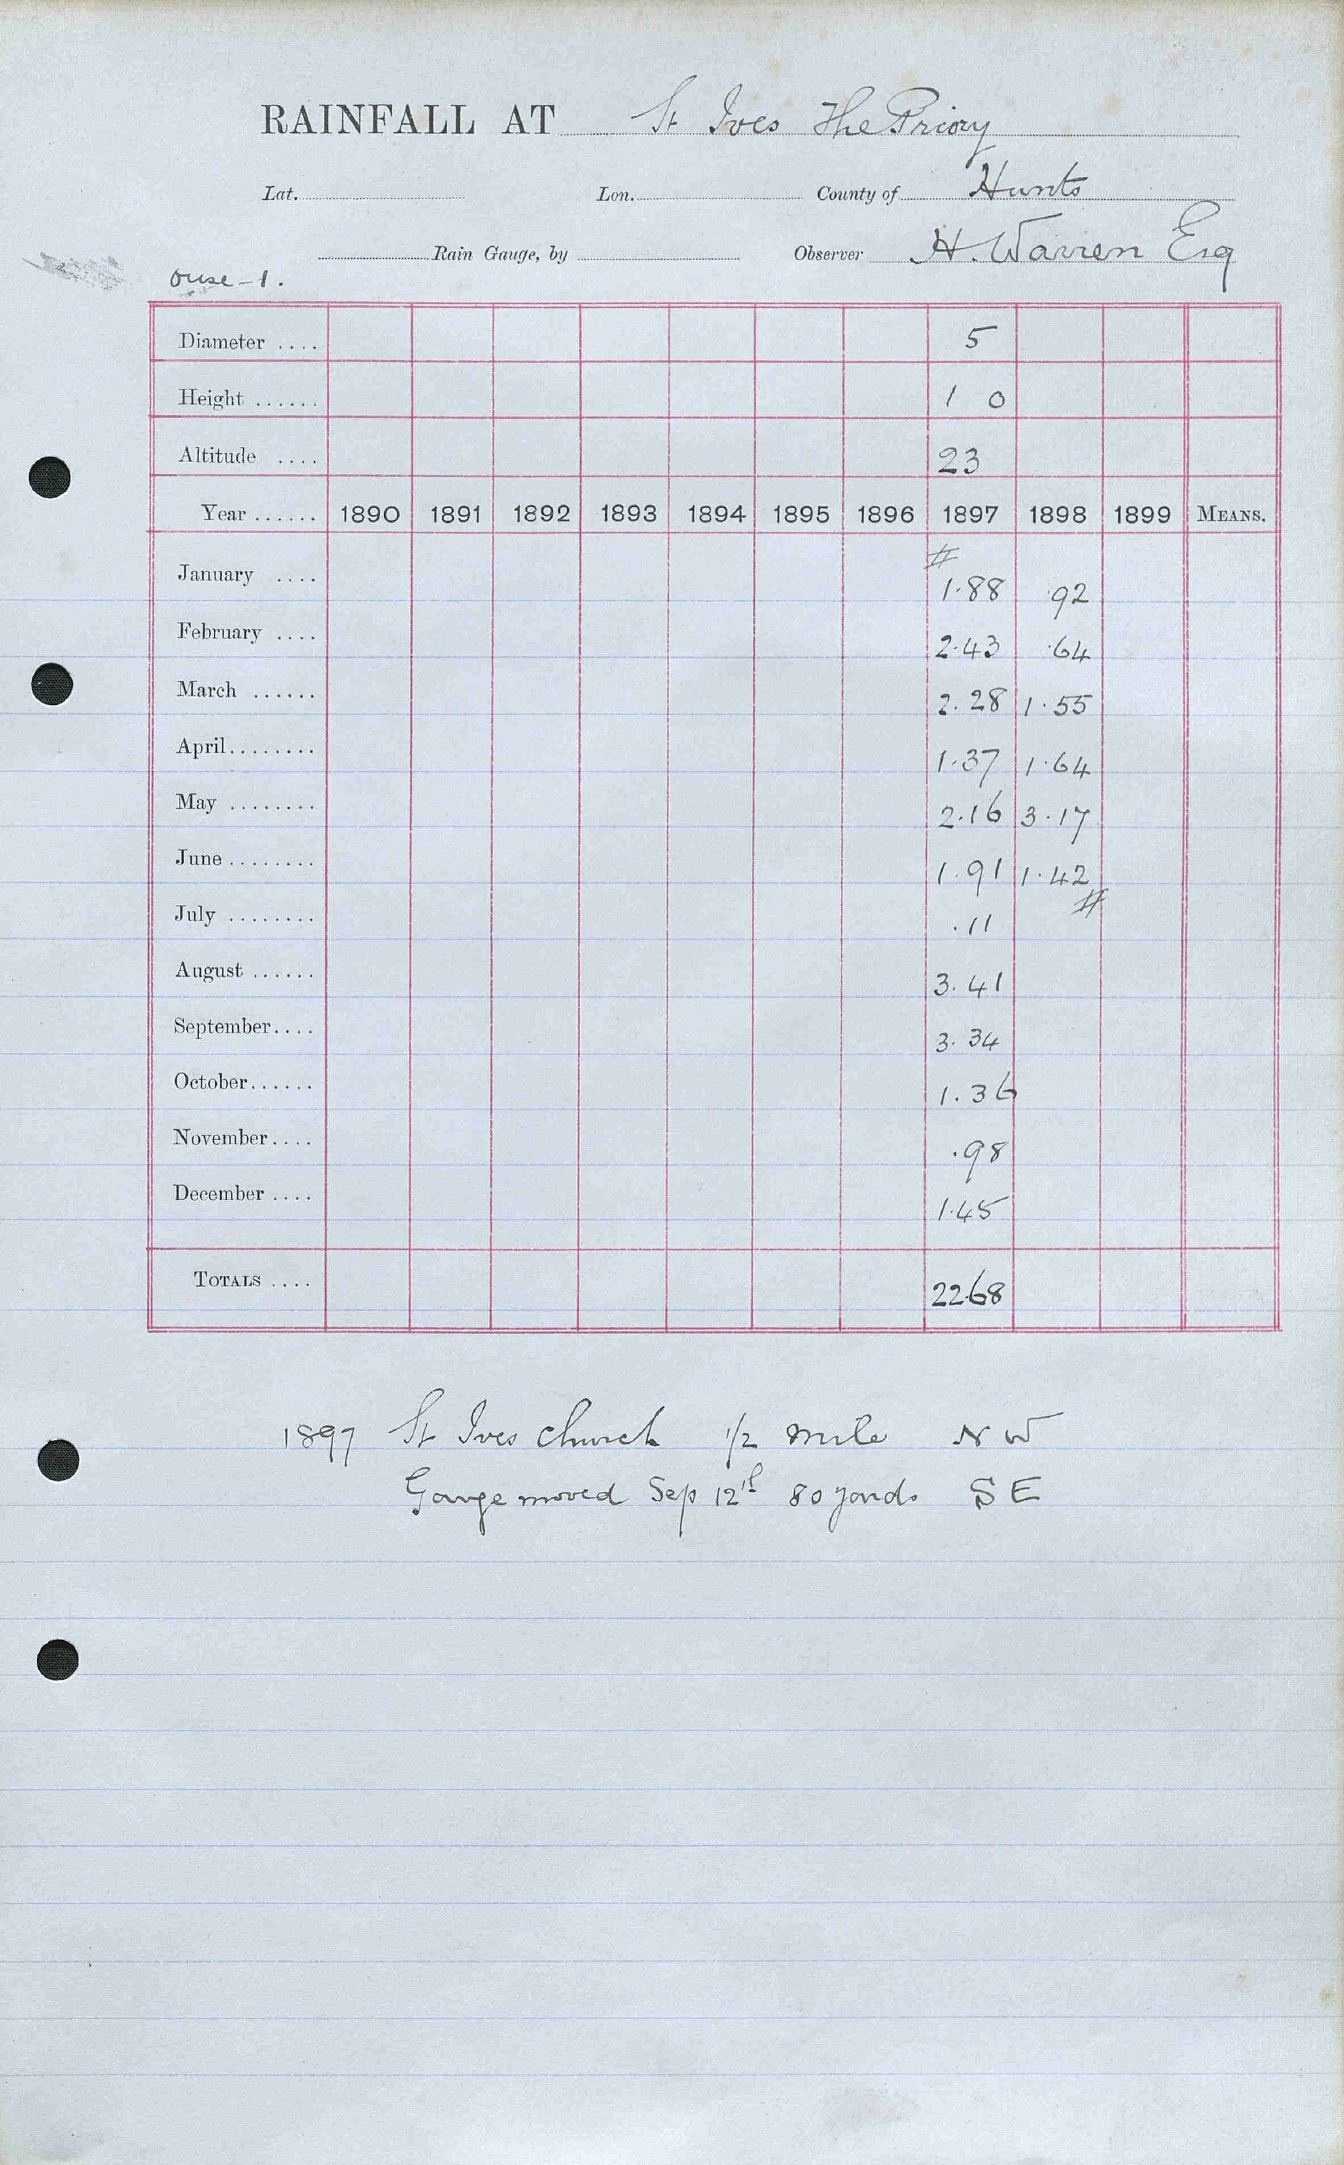 RAINFALL AT St Ives The Priory
Lat. Lon. County of Hunts
Rain Gauge, by Observer H. Warren Esq
ouse - 1.
Diameter .... 5
Height ...... 1 0
Altitude .... 23
Year ...... 1890 1891 1892 1893 1894 1895 1896 1897 1898 1899 MEANS.
January .... # 1.88 .92
February .... 2.43 .64
March ...... 2.28 1.55
April........ 1.37 1.64
May ........ 2.16 3.17
June ........ 1.91 1.42
July ........ .11 #
August ...... 3.41
September.... 3.34
October...... 1.36
November.... .98
December .... 1.45
TOTALS .... 22.68
1897 St Ives church 1/2 mile NW
Gauge moved Sep 12th 80 yards SE